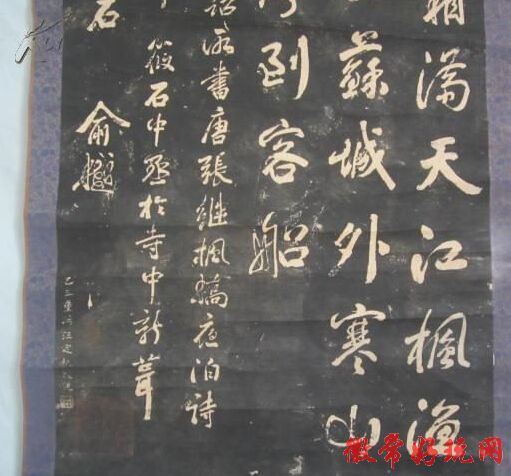 霜滿天江楓漁
蘇城外寒山
到客船
詔所書唐張繼楓橋夜泊詩
筱石中丞於寺中新葺
石 俞樾
徽常好玩网